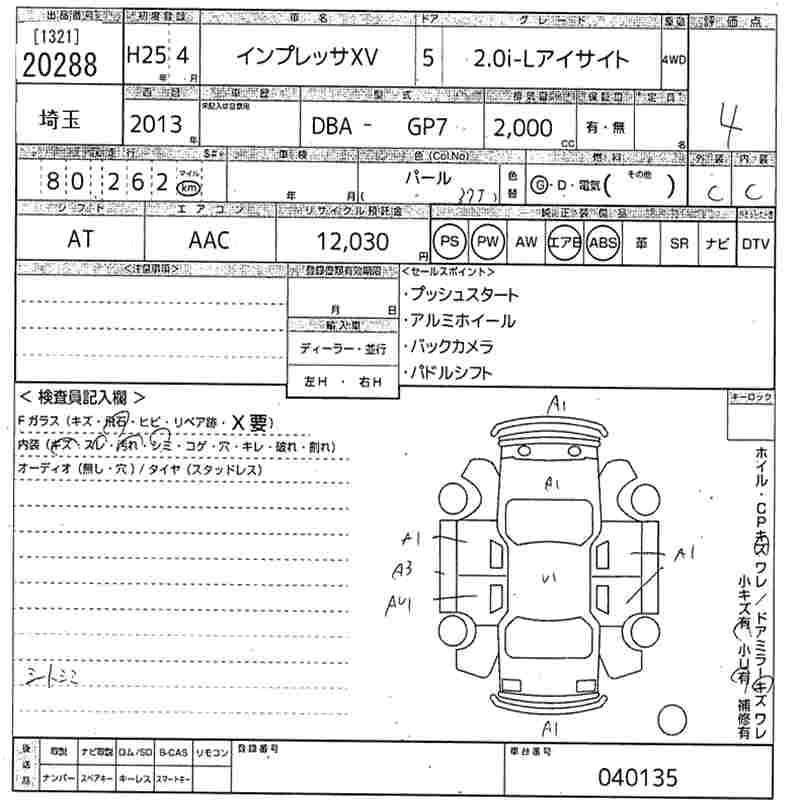 出品番号 初度登録 車名 ドア グレード 車歴 評価点
[1321]
20288 H25 4 インプレッサXV 5 2.0i-Lアイサイト 4WD 4
年 月
埼玉
車歴 型式 排気量 保証書 定員
未記入は自家用
2013 DBA - GP7 2,000 有・無
年 CC 名
走行 車検 色(Col.No) 燃料 外装 内装
80,262 マイル km 年 月 パール (377) 色替 G・D・電気(その他) C C
シフト エアコン リサイクル預託金 純正装備品
AT AAC 12,030 円 PS PW AW エアB ABS 革 SR ナビ DTV
<注意事項> 登録書類有効期限 <セールスポイント>
月 日
・プッシュスタート
・アルミホイール
・バックカメラ
・パドルシフト
輸入車
ディーラー・並行
左H ・ 右H
<検査員記入欄> キーロック
Fガラス(キズ・飛石・ヒビ・リペア跡・X要)
内装(キズ・スレ・汚れ・シミ・コゲ・穴・キレ・破れ・割れ)
オーディオ(無し・穴)/タイヤ(スタッドレス)
A1
A1
A1
A3
AU1
U1
A1
A1
シートシミ
ホイル・CPキズワレ/ドアミラーキズワレ
小キズ有・小U有・補修有
後送品 取説 ナビ取説 ロム/SD B-CAS リモコン 登録番号 車台番号
ナンバー スペアキー キーレス スマートキー 040135